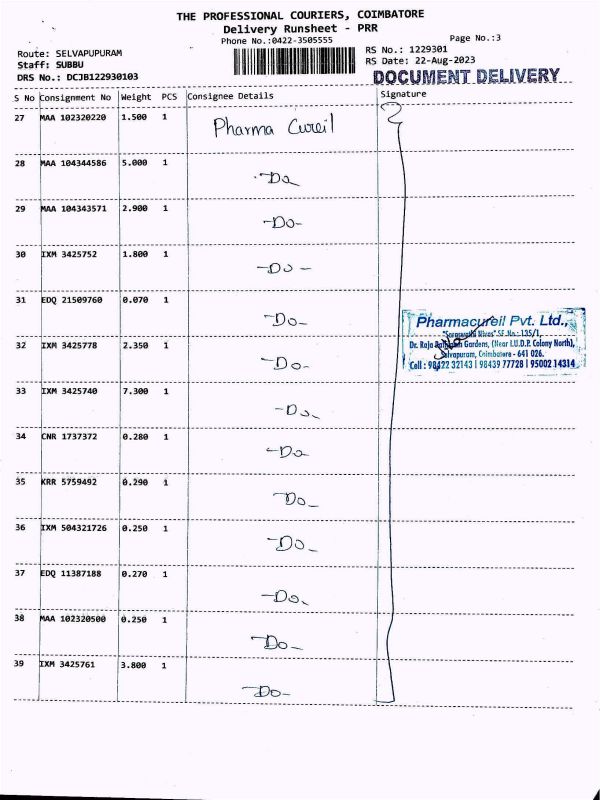 THE PROFESSIONAL COURIERS, COIMBATORE
Delivery Runsheet - PRR
Phone No.:0422-3505555
Page No.:3
Route: SELVAPUPURAM
RS No.: 1229301
Staff: SUBBU
RS Date: 22-Aug-2023
DRS No.: DCJB122930103
DOCUMENT DELIVERY
S No Consignment No Weight PCS Consignee Details Signature
27 MAA 102320220 1.500 1 Pharma Cureil
28 MAA 104344586 5.000 1 -Do
29 MAA 104343571 2.900 1 -Do-
30 IXM 3425752 1.800 1 -Do-
31 EDQ 21509760 0.070 1 -Do-
32 IXM 3425778 2.350 1 -Do-
33 IXM 3425740 7.300 1 -Do-
34 CNR 1737372 0.280 1 -Do
35 KRR 5759492 0.290 1 -Do-
36 IXM 504321726 0.250 1 -Do-
37 EDQ 11387188 0.270 1 -Do-
38 MAA 102320500 0.250 1 -Do-
39 IXM 3425761 3.800 1 -Do-
Pharmacureil Pvt. Ltd.,
"Saraswathi Nivas" SF.No.: 135/1,
Dr. Raja Gardens, (Near I.U.D.P. Colony North),
Selvapuram, Coimbatore - 641 026.
Cell : 98422 32143 | 98439 77728 | 95002 14314